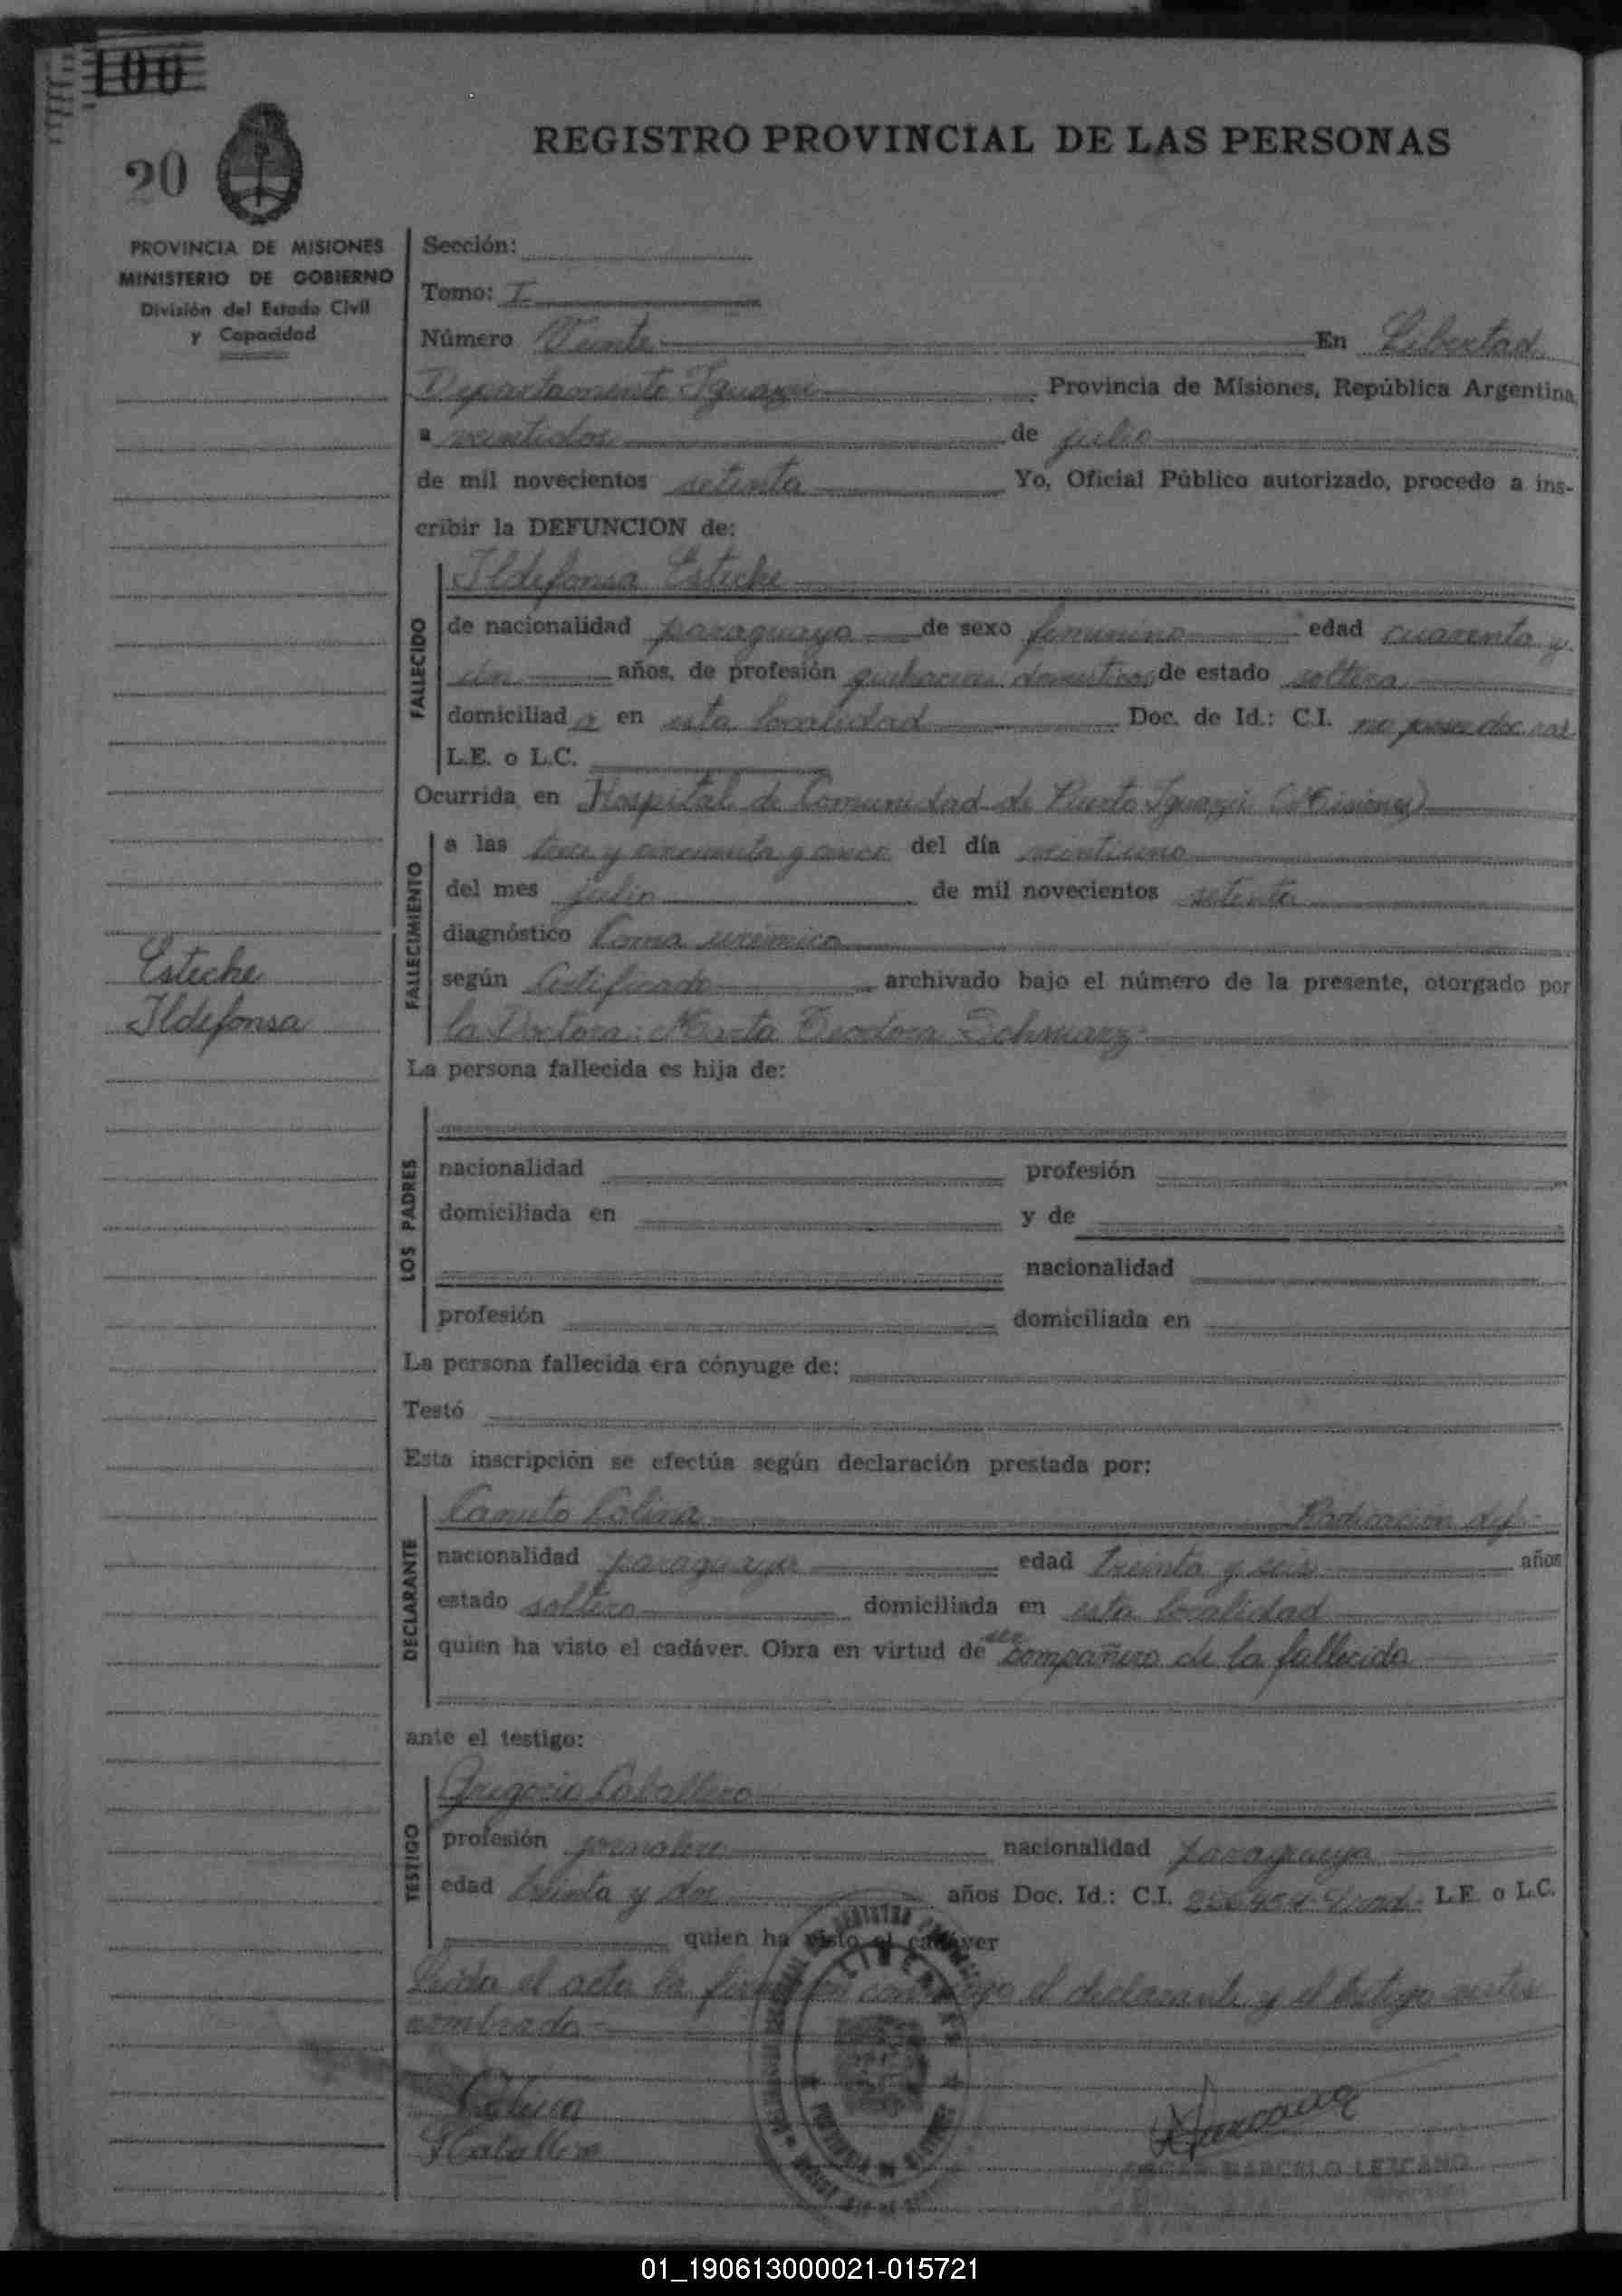 100
20
REGISTRO PROVINCIAL DE LAS PERSONAS
PROVINCIA DE MISIONES
MINISTERIO DE GOBIERNO
División del Estado Civil
y Capacidad
Sección:
Tomo: I
Número Veinte En Libertad
Departamento Iguazú Provincia de Misiones, República Argentina,
a veintidos de julio
de mil novecientos setenta Yo, Oficial Público autorizado, procedo a ins-
cribir la DEFUNCION de:
Ildefonsa Esteche
FALLECIDO
de nacionalidad paraguaya de sexo femenino edad cuarenta y
un años, de profesión quehaceres domesticos de estado soltera
domiciliada en esta localidad Doc. de Id.: C.I. no posee doc.
L.E. o L.C.
Ocurrida en Hospital de Comunidad de Puerto Iguazú (Misiones)
FALLECIMIENTO
a las y cincuenta y del día veintiuno
del mes julio de mil novecientos setenta
diagnóstico Coma urémico
según Certificado archivado bajo el número de la presente, otorgado por
la Doctora: Marta Teodora Schwarz
Esteche
Ildefonsa
La persona fallecida es hija de:
LOS PADRES
nacionalidad profesión
domiciliada en y de
nacionalidad
profesión domiciliada en
La persona fallecida era cónyuge de:
Testó
Esta inscripción se efectúa según declaración prestada por:
DECLARANTE
Canuto Colina Radicación def.
nacionalidad paraguaya edad treinta y seis años
estado soltero domiciliada en esta localidad
quien ha visto el cadáver. Obra en virtud de ser compañero de la fallecida
ante el testigo:
TESTIGO
Gregorio Caballero
profesión jornalero nacionalidad paraguaya
edad treinta y dos años Doc. Id.: C.I. L.E. o L.C.
quien ha visto el cadáver
Leida el acta la firman conmigo el declarante y el testigo antes
nombrado
Colina
Caballero
LIBERTAD
OSCAR MARCELO LEZCANO
01_190613000021-015721